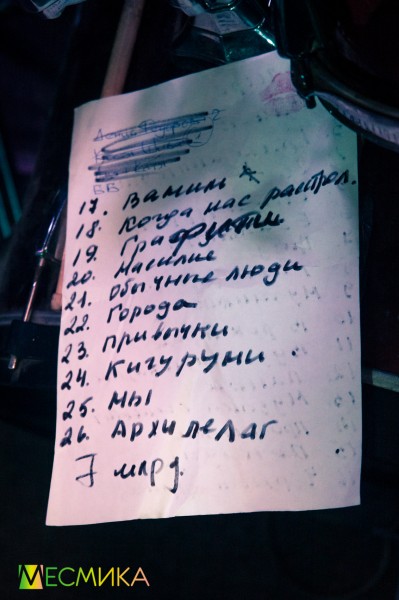 ББ
17. Ваним
18. Когда нас растрел.
19. Граффити
20. Насилие
21. Обычные люди
22. Города
23. Привычки
24. Кигуруми
25. Мы
26. Архипелаг
7 млрд.
МЕСМИКА